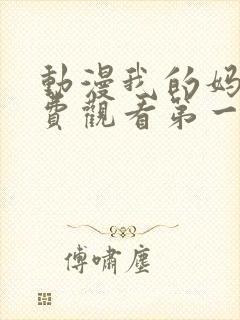 動漫我的妈
費觀看第一
傅嘯塵